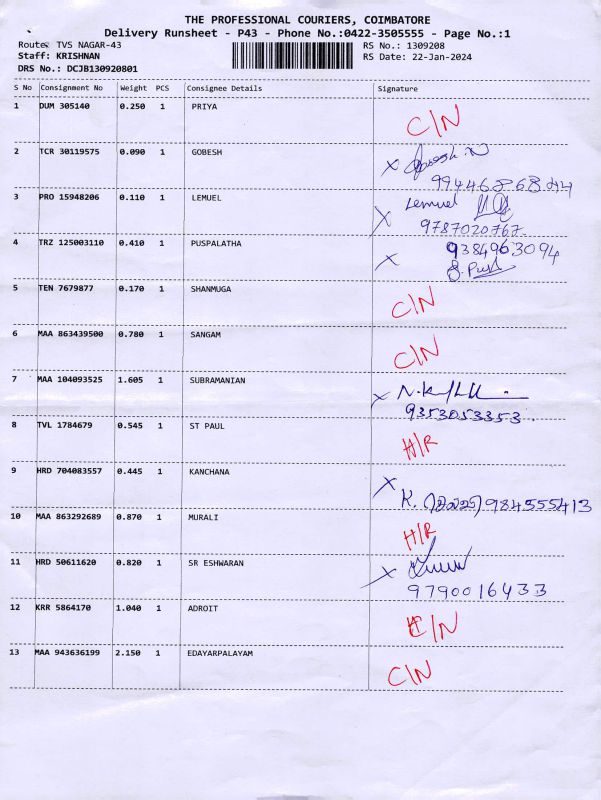 THE PROFESSIONAL COURIERS, COIMBATORE
Delivery Runsheet - P43 - Phone No.:0422-3505555 - Page No.:1
Route: TVS NAGAR-43 RS No.: 1309208
Staff: KRISHNAN RS Date: 22-Jan-2024
DRS No.: DCJB130920801
S No Consignment No Weight PCS Consignee Details Signature
1 DUM 305140 0.250 1 PRIYA
C/N
2 TCR 30119575 0.090 1 GOBESH
X
3 PRO 15948206 0.110 1 LEMUEL Lemuel
X 9787020767
4 TRZ 125003110 0.410 1 PUSPALATHA 9384963094
X
5 TEN 7679877 0.170 1 SHANMUGA
C/N
6 MAA 863439500 0.780 1 SANGAM
C/N
7 MAA 104093525 1.605 1 SUBRAMANIAN
X
9353053353
8 TVL 1784679 0.545 1 ST PAUL
H/R
9 HRD 704083557 0.445 1 KANCHANA
X
K. 984555413
10 MAA 863292689 0.870 1 MURALI
H/R
11 HRD 50611620 0.820 1 SR ESHWARAN
X
9790016433
12 KRR 5864170 1.040 1 ADROIT
C/N
13 MAA 943636199 2.150 1 EDAYARPALAYAM
C/N